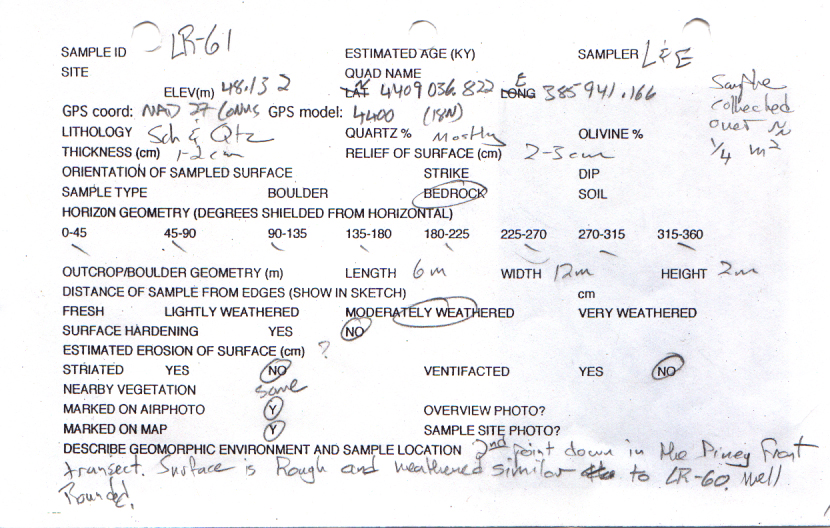 SAMPLE ID LR-61 ESTIMATED AGE (KY) SAMPLER L & E
SITE QUAD NAME
ELEV(m) 48.132 LAT N 4409036.822 LONG E 385941.166
GPS coord: NAD 27 CONUS GPS model: 4400 (18N)
LITHOLOGY Sch & Qtz QUARTZ % Mostly OLIVINE %
Sample collected over ≈ 1/4 m²
THICKNESS (cm) 1-2 cm RELIEF OF SURFACE (cm) 2-3 cm
ORIENTATION OF SAMPLED SURFACE STRIKE DIP
SAMPLE TYPE BOULDER BEDROCK SOIL
HORIZON GEOMETRY (DEGREES SHIELDED FROM HORIZONTAL)
0-45 45-90 90-135 135-180 180-225 225-270 270-315 315-360
OUTCROP/BOULDER GEOMETRY (m) LENGTH 6m WIDTH 12m HEIGHT 2m
DISTANCE OF SAMPLE FROM EDGES (SHOW IN SKETCH) cm
FRESH LIGHTLY WEATHERED MODERATELY WEATHERED VERY WEATHERED
SURFACE HARDENING YES NO
ESTIMATED EROSION OF SURFACE (cm) ?
STRIATED YES NO VENTIFACTED YES NO
NEARBY VEGETATION some
MARKED ON AIRPHOTO Y OVERVIEW PHOTO?
MARKED ON MAP Y SAMPLE SITE PHOTO?
DESCRIBE GEOMORPHIC ENVIRONMENT AND SAMPLE LOCATION 2nd point down in the Piney Front
transect. Surface is Rough and weathered similar to LR-60. Well
Rounded.